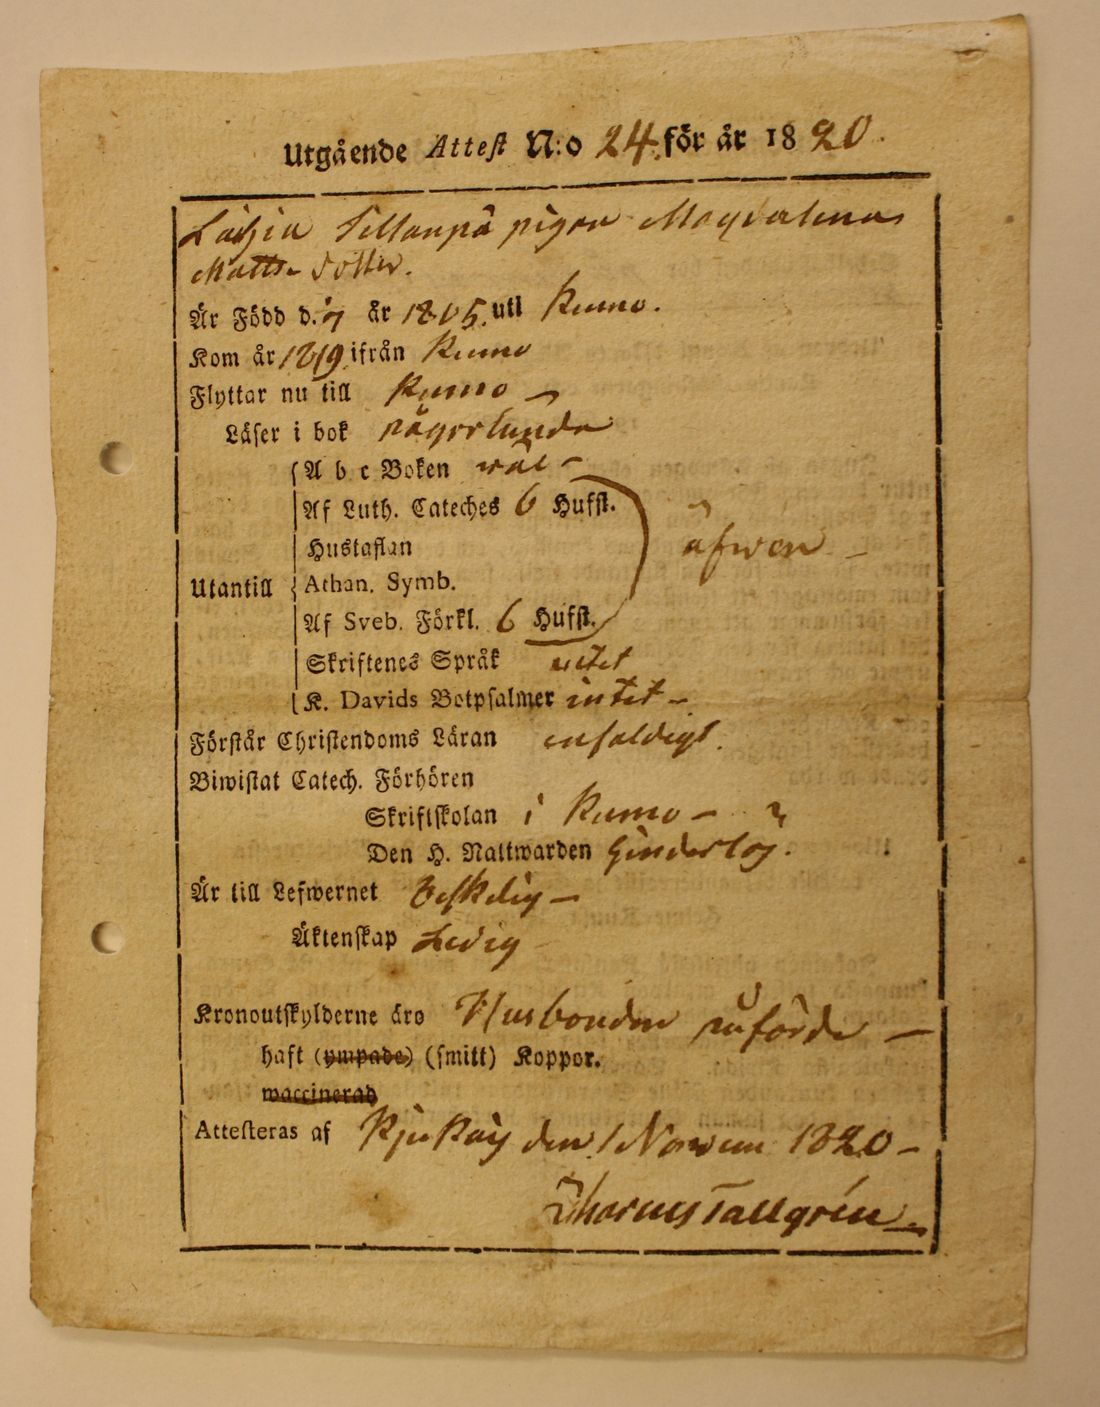 Utgående Attest N:o 24. för år 1820.
pigan Magdalena
Matts Dotter.
Är Född d. 7 år 1805. uti Kumo.
Kom år 1819. ifrån Kumo
Flyttar nu till Kumo –
Läser i bok någorlunda
A b c Boken wäl –
Af Luth. Cateches 6 Hufst.
Hustaflan äfwen –
Utantill Athan. Symb.
Af Sveb. Förkl. 6 Hufst.
Skriftenes Språk intet
K. Davids Botpsalmer intet –
Förstår Christendoms Läran enfaldigt.
Biwistat Catech. Förhören
Skriftskolan i Kumo –
Den H. Nattwarden
Är till Lefwernet beskedlig –
Äktenskap Ledig
Kronoutskylderne äro Husbonden påförde –
haft (ympade) (smitt) Koppor.
waccinerad
Attesteras af Kjukais den 1 Novem 1820 –
Thomas Tallgrén